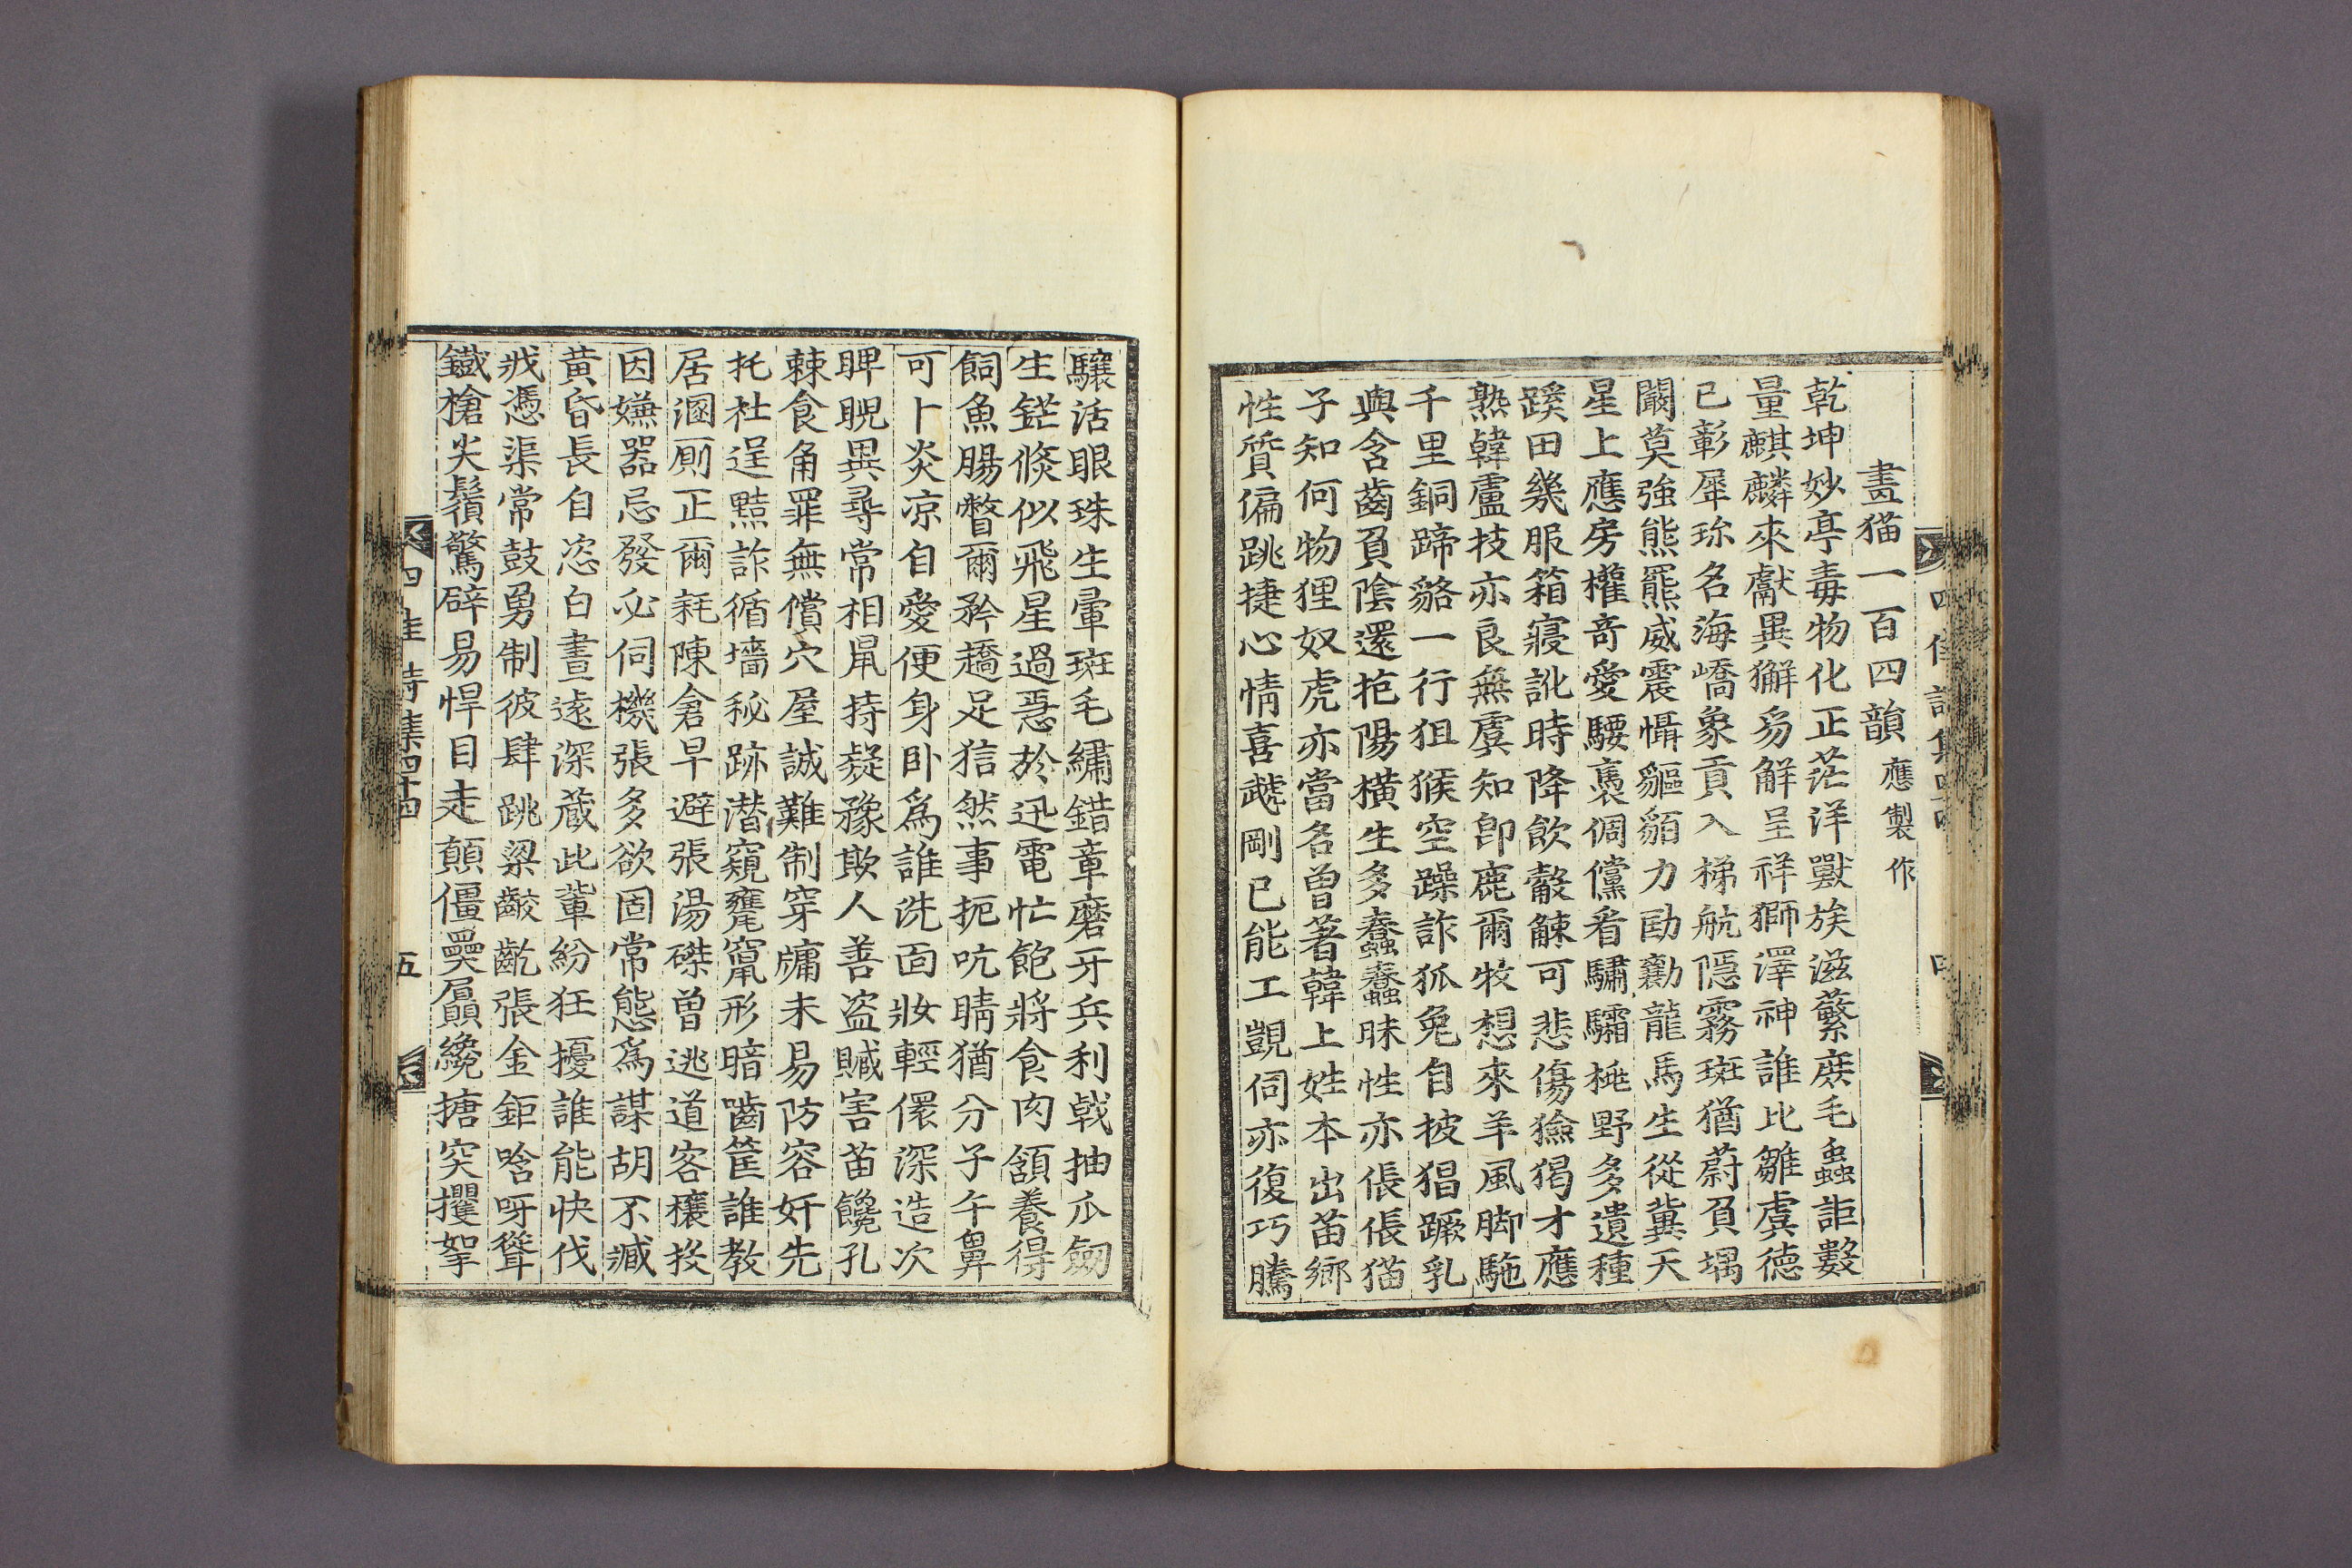 畫猫一百四韻 應製作
乾坤妙亭毒物化正茫洋獸族滋蕃庶毛蟲詎數
量麒麟來獻異獬豸解呈祥獅澤神誰比雛虞德
已彰犀珎名海嶠象貢入梯航隱霧斑猶蔚負堣
闞莫強熊羆威震懾貙貊力劻勷龍馬生從兾天
星上應房權竒愛騕褭倜儻看驌驦桃野多遺種
蹊田幾服箱寢訛時降飮觳觫可悲傷獫猲才應
熟韓盧技亦良無虞知卽鹿爾牧想來羊風脚駞
千里銅蹄貉一行狙猴空躁詐狐兔自披猖蹶乳
與含齒負陰還抱陽橫生多蠢蠢昧性亦倀倀猫
子知何物狸奴虎亦當名曾著韓上姓本出苗鄕
性質偏跳捷心情喜趑剛已能工覬伺亦復巧騰
驤活眼珠生暈斑毛繡錯章磨牙兵利戟抽爪劒
生鋩倐似飛星過惡於迅電忙飽將食肉頷養得
飼魚腸瞥爾矜蹻足狺然事扼吭睛猶分子午鼻
可卜炎凉自愛便身臥爲誰洗面妝輕儇深造次
睥睨異尋常相鼠持疑豫欺人善盗贓害苗饞孔
棘食角罪無償穴屋誠難制穿墉未易防容奸先
托社逞黠詐循墻秘跡潜窺甕竄形暗嚙筐誰敎
居溷厠正爾耗陳倉早避張湯磔曾逃道客穰投
因嫌器忌發必伺機張多欲固常態爲謀胡不臧
黃昏長自恣白晝逺深蔵此軰紛狂擾誰能快伐
戕憑渠常鼓勇制彼肆跳梁齩齕張金鉅唅呀聳
鐵槍尖鬚驚辟易悍目走顚僵奰屭纔搪突攫拏
四佳詩集四十四 五